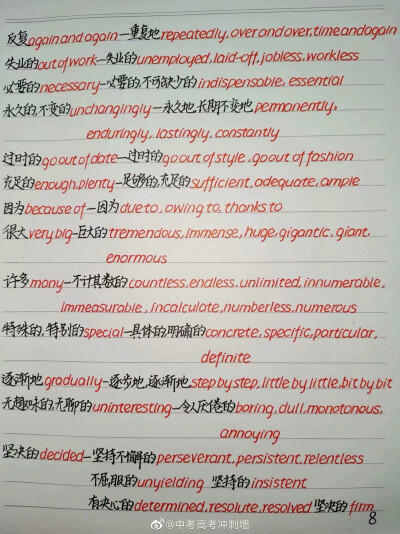 反复again and again—重复地repeatedly, over and over, time and again
失业的out of work—失业的unemployed, laid-off, jobless, workless
必要的necessary—必要的,不可缺少的indispensable, essential
永久的,不变的unchangingly—永久地,长期不变地permanently,
enduringly, lastingly, constantly
过时的go out of date—过时的go out of style, go out of fashion
充足的enough, plenty—足够的,充足的sufficient, adequate, ample
因为because of—因为due to, owing to, thanks to
很大very big—巨大的tremendous, immense, huge, gigantic, giant,
enormous
许多many—不计其数的countless, endless, unlimited, innumerable,
immeasurable, incalculate, numberless, numerous
特殊的,特别的special—具体的,明确的concrete, specific, particular,
definite
逐渐地gradually—逐步地,逐渐地step by step, little by little, bit by bit
无趣味的,无聊的uninteresting—令人厌倦的boring, dull, monotonous,
annoying
坚决的decided—坚持不懈的perseverant, persistent, relentless
不屈服的unyielding 坚持的insistent
有决心的determined, resolute, resolved 坚决的firm
8
@中考高考冲刺墙